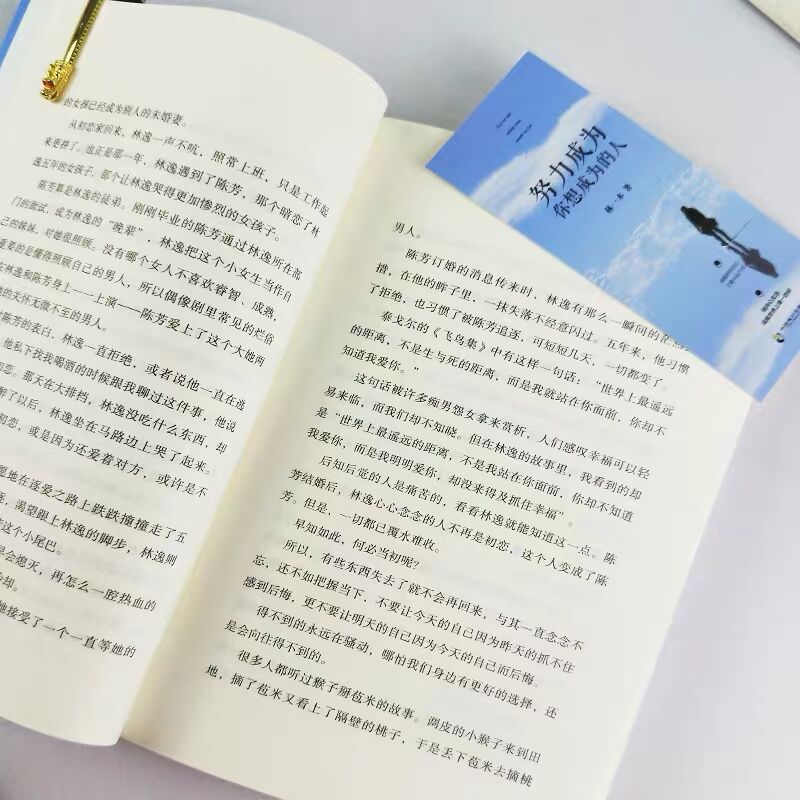 的女孩已经成为别人的未婚妻。
从初恋家回来，林逸一声不吭，照常上班，只是工作起
来更拼了。也正是那一年，林逸遇到了陈芳，那个暗恋了林
逸五年的女孩子，那个让林逸哭得更加惨烈的女孩子。
陈芳算是林逸的徒弟。刚刚毕业的陈芳通过林逸所在部
门的面试，成为林逸的“晚辈”，林逸把这个小女生当作自
己的妹妹，对她很照顾。没有哪个女人不喜欢睿智、成熟，
重要的是懂得照顾自己的男人，所以偶像剧里常见的烂俗
在林逸和陈芳身上——上演——陈芳爱上了这个大她两
她的关怀无微不至的男人。
陈芳的表白，林逸一直拒绝，或者说他一直在逃
他私下找我喝酒的时候跟我聊过这件事，他说
初恋。那天在大排档，林逸没吃什么东西，却
醉了以后，林逸坐在马路边上哭了起来。
初恋，或是因为还爱着对方，或许是不
愿地在逐爱之路上跌跌撞撞走了五
逐，渴望跟上林逸的脚步，林逸则
这个小尾巴。
早会熄灭，再怎么一腔热血的
冷却。
她接受了一个一直等她的
男人。
陈芳订婚的消息传来时，林逸有那么一瞬间的
措，在他的眸子里，一抹失落不经意闪过。五年来，他习惯
了拒绝，也习惯了被陈芳追逐，可短短几天，一切都变了。
泰戈尔的《飞鸟集》中有这样一句话：“世界上最遥远
的距离，不是生与死的距离，而是我就站在你面前，你却不
知道我爱你。”
这句话被许多痴男怨女拿来赏析，人们感叹幸福可以轻
易来临，而我们却不知晓。但在林逸的故事里，我看到的却
是“世界上最遥远的距离，不是我站在你面前，你却不知道
我爱你，而是我明明爱你，却没来得及抓住幸福”。
后知后觉的人是痛苦的，看看林逸就能知道这一点。陈
芳结婚后，林逸心心念念的人不再是初恋，这个人变成了陈
芳。但是，一切都已覆水难收。
早知如此，何必当初呢？
所以，有些东西失去了就不会再回来，与其一直念念不
忘，还不如把握当下，不要让今天的自己因为昨天的抓不住
感到后悔，更不要让明天的自己因为今天的自己而后悔。
得不到的永远在骚动，哪怕我们身边有更好的选择，还
是会向往得不到的。
很多人都听过猴子掰苞米的故事。调皮的小猴子来到田
地，摘了苞米又看上了隔壁的桃子，于是丢下苞米去摘桃
努力成为
你想成为的人
林一木 著